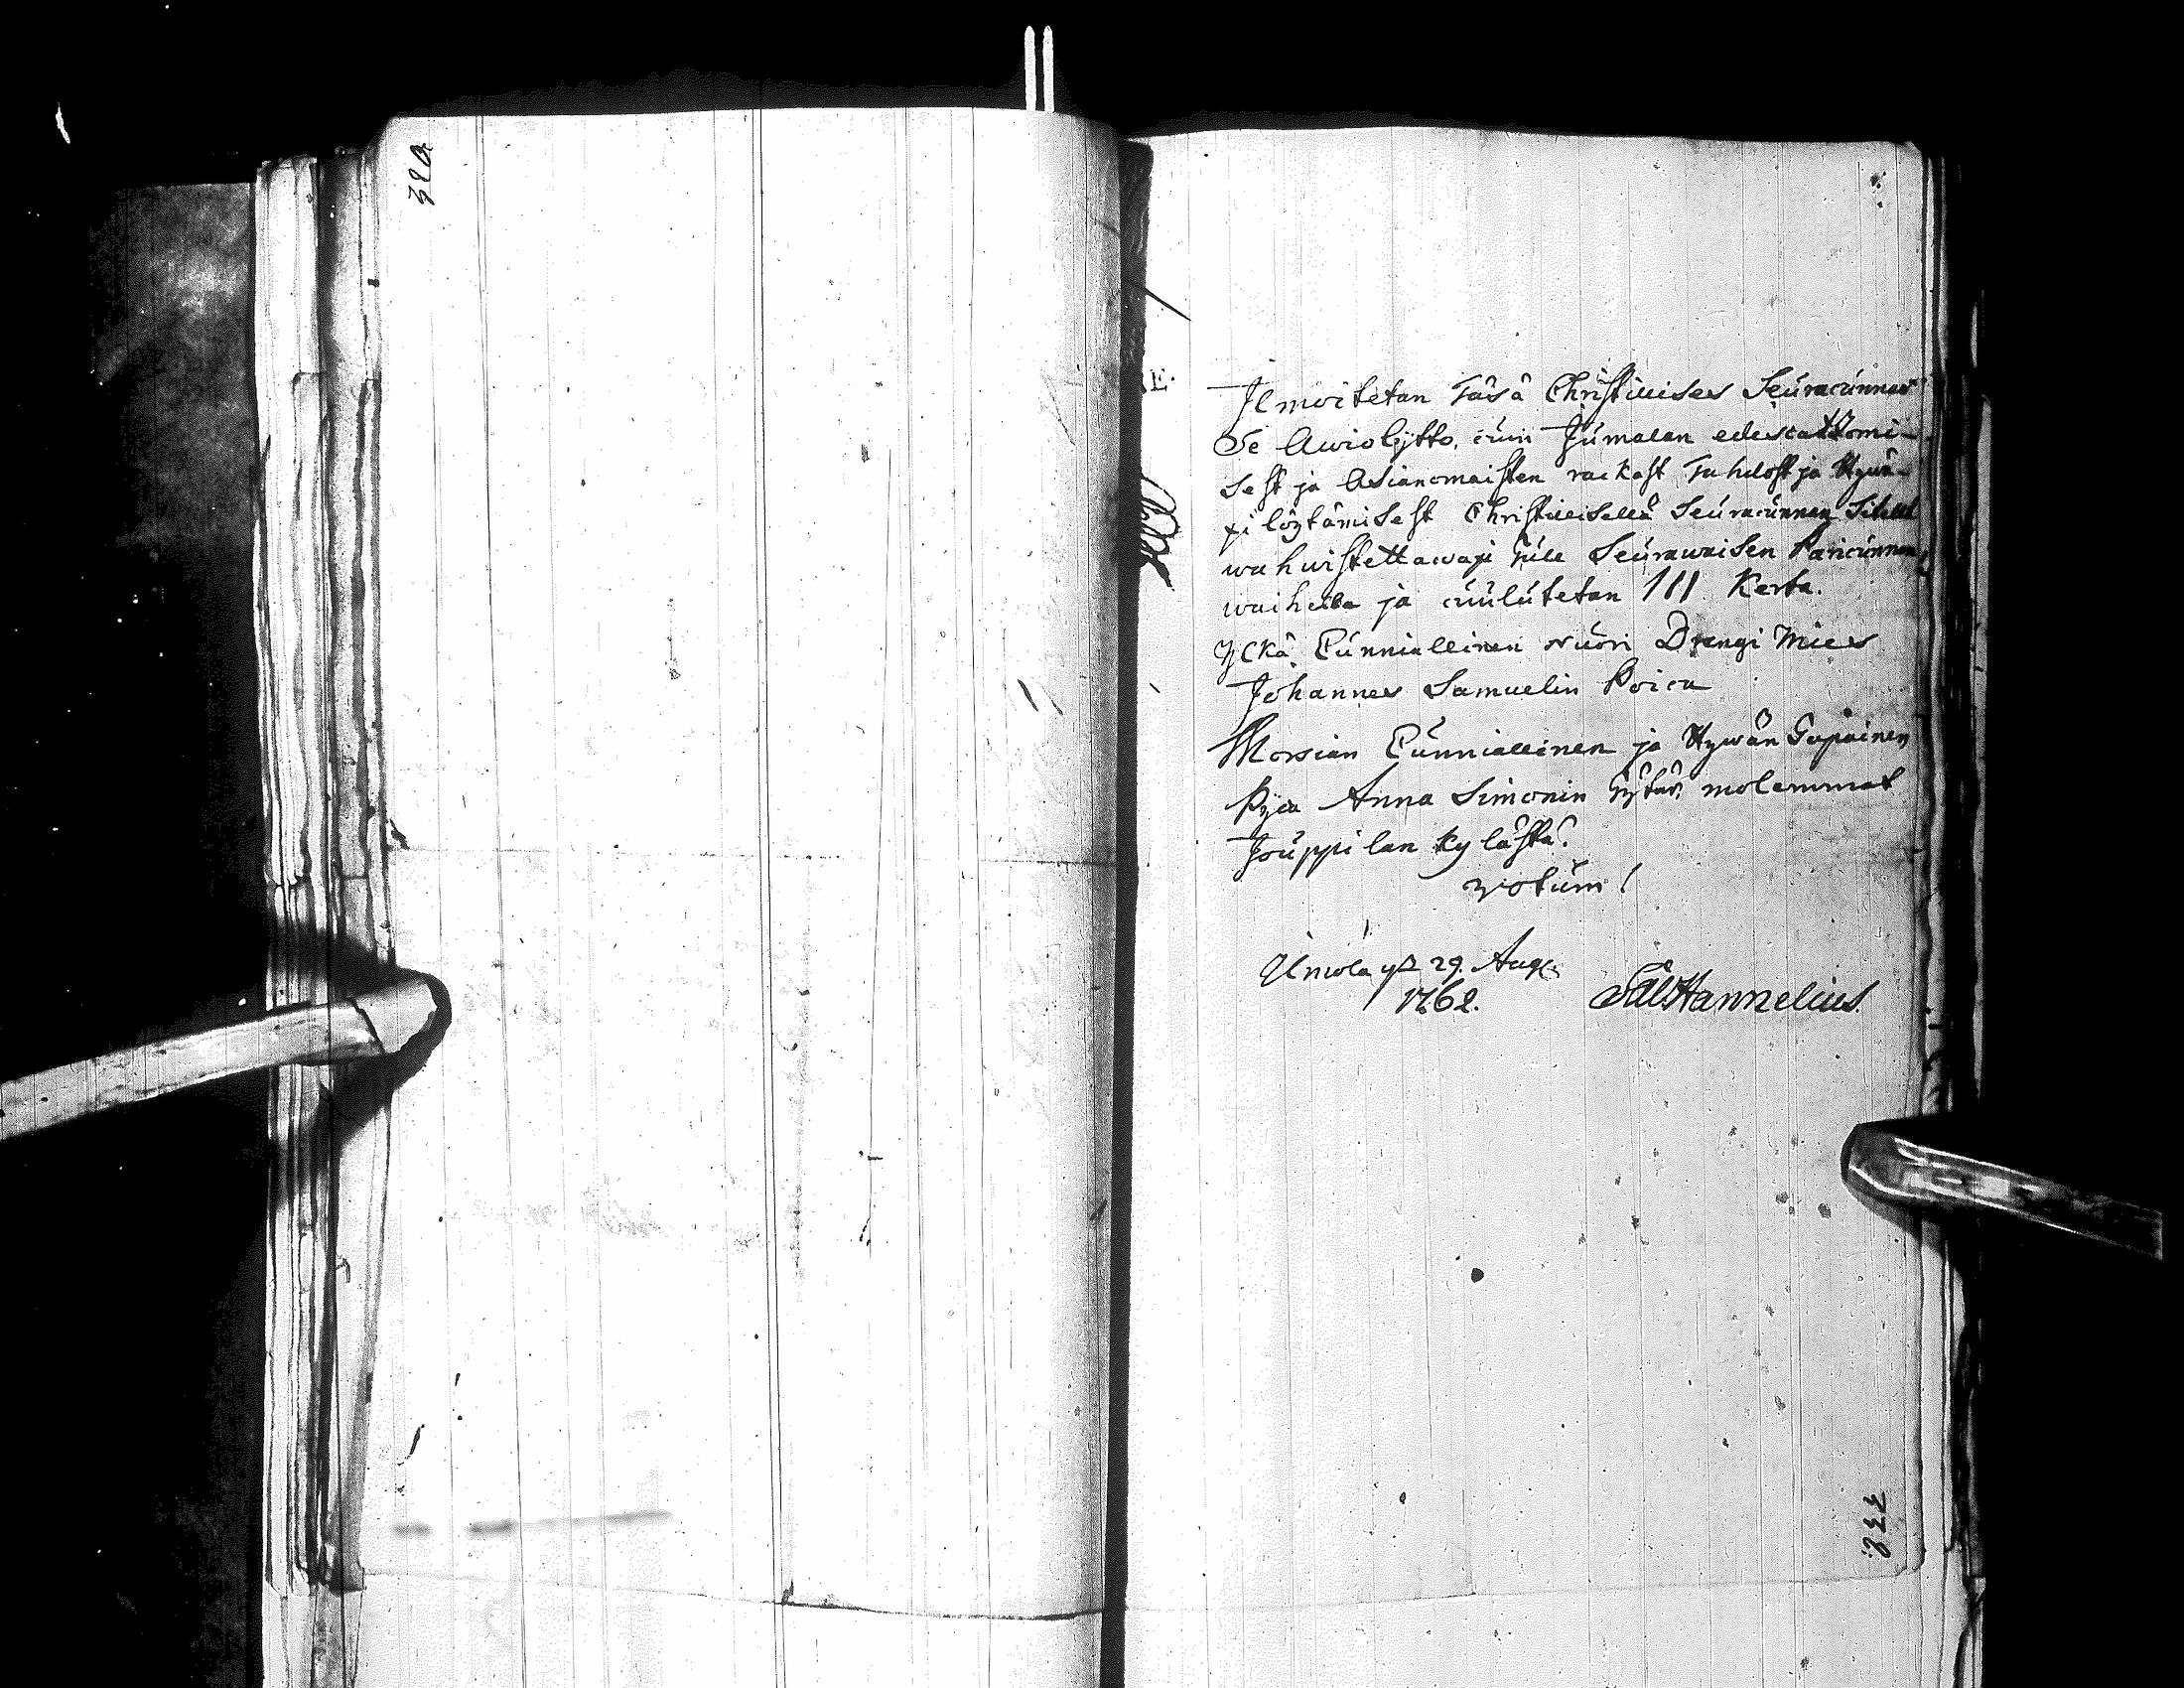 320.
Ilmoitetan Täsä Christillises Seuracunnas
Se Awiolijtto, cuin Jumalan edescatzomi-
sest ja Asianomaisten rackast Tahdost ja Hywä-
xi löytämisest Christillisellä Seuracunnan Sitell
wahwistettawaxi tule Seurawaisen Paricunnan
waihella ja cuulutetan III Kerta.
Ylkä Cunniallinen Nuori Drengi Mies
Johannes Samuelin Poica
Morsian Cunniallinen ja Hywän Tapainen
Pijca Anna Simonin Tytär, molemmat
Jouppilan kylästä.
Votum!
29. Aug.
1762.
Hannelius.
332.